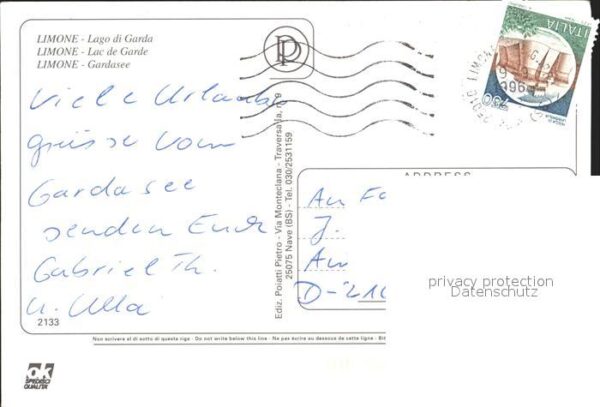 LIMONE - Lago di Garda
LIMONE - Lac de Garde
LIMONE - Gardasee
Viele Urlaubs
grüsse vom
Gardasee
senden Euch
Gabriel Th.
u. Ulla
2133
Non scrivere al di sotto di questa riga - Do not write below this line - Ne pas écrire au dessous de cette ligne - Bit
ok
SPEDISCI
QUALITA'
Ediz. Poiatti Pietro - Via Monteclana - Traversa IA, n. 9
25075 Nave (BS) - Tel. 030/2531159
P
ITALIA
750
LIMONE
ADDRESS
An Fa
J.
Am
D-210
privacy protection
Datenschutz